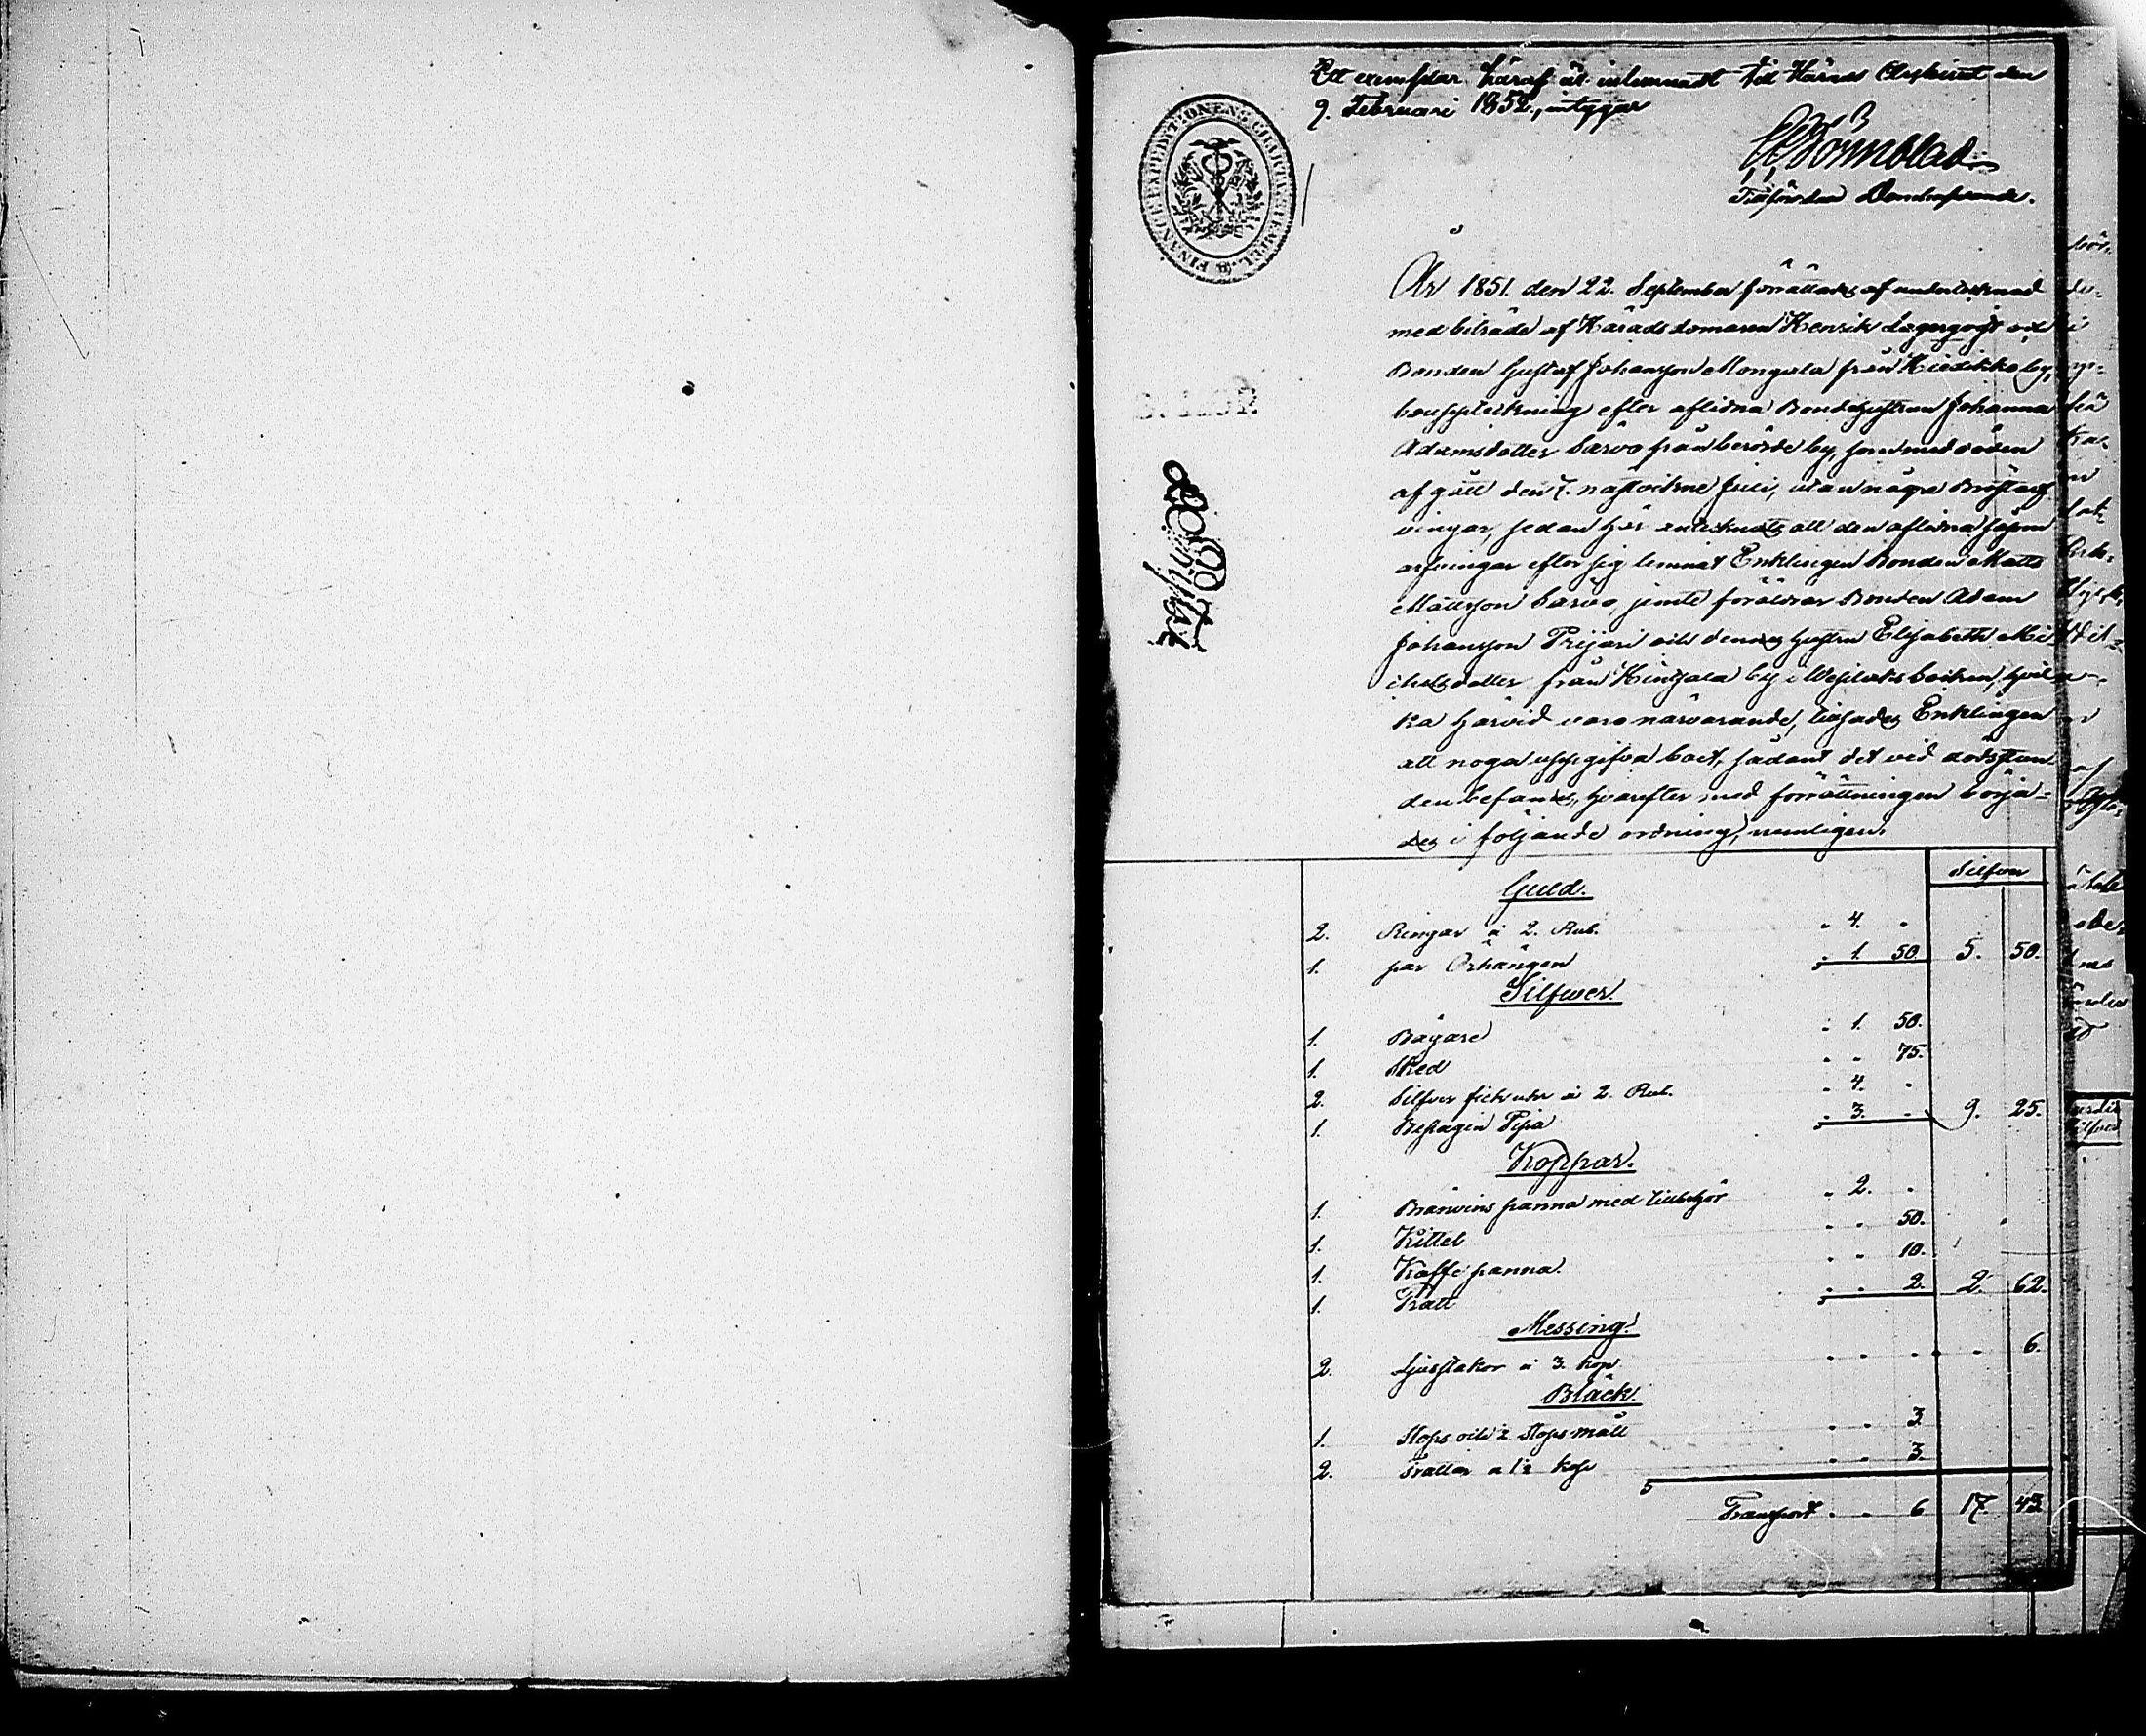 Ett exemplar häraf är inlemnadt till Härads Archivet den
9. Februari 1852, intygar
Tillförordnad Domhafvande.
FINANCE EXPEDITIONENS CHARTÆ STEMPEL
År 1851. den 22. September förrättades af undertecknad
med biträde af Häradsdomaren Henrik Lagerqvist och
Bonden Gustaf Johansson Mongala från Hiedikko by,
bouppteckning efter aflidna Bondehustrun Johanna
Adamsdotter Sarvo från berörde by, som med döden
afgått den 7. nästvikne Juli, utan några Bröstarf
vingar, sedan här antecknats att den aflidna såsom
arfvingar efter sig lemnat Enklingen Bonden Matts
Mattsson Sarvo, jemte föräldrar Bonden Adam
Johansson Prijari och dennes hustru Elisabeth Mi-
chelsdotter från Hinsala by i Vesilaks socken, hvil
ka härvid voro närvarande, tillsades Enklingen
att noga uppgifva boet, sådant det vid dödsstun
den befanns, hvarefter med förrättningen börja-
des i följande ordning, nemligen.
Silfver
Guld.
2. Ringar à 2. Rub. " 4. "
1. par Örhängen " 1. 50. 5. 50.
Silfwer.
1. Bägare " 1. 50.
1. Sked " " 75.
2. Silfver fickuhr à 2. Rub. " 4. "
1. Beslagen Pipa " 3. " 9. 25.
Koppar.
1. Bränvins panna med tillbehör " 2. "
1. Kittel " " 50.
1. Kaffe panna. " " 10.
1. Tratt " " 2. 2. 62.
Messing.
2. Ljusstakar à 3. kop. " " " " " 6.
Bläck.
1. Stops och ½ Stops mått " " 3.
2. Trattar à 1½ kop " " 3.
Transport " " 6 17. 43.